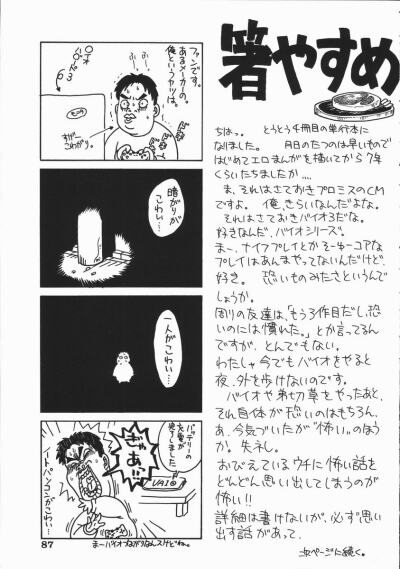 箸やすめ
ちはっ。 とうとう4冊目の単行本に
なりました。 月日のたつのは早いもので
はじめてエロまんがを描いてから7年
くらいたちましたか‥‥
ま、それはさておきプロミスのCM
ですよ。 俺、きらいなんだよな。
それはさておきバイオ3だな。
好きなんだ、バイオシリーズ。
ま〜、ナイフプレイとかそーゆーコアな
プレイはあんまやってないんだけど、
好き。 恐いものみたさというんで
しょうか。
周りの友達は、「もう3作目だし、恐
いのには慣れた。」とか言ってるん
ですが、とんでもない。
わたしゃ今でもバイオをやると
夜、外を歩けないのです。
バイオや弟切草をやったあと、
それ自体が恐いのはもちろん、
あ、今気づいたが"怖い"のほう
か。失礼。
おびえているウチに怖い話を
どんどん思い出してしまうのが
怖い!!
詳細は書けないが、必ず思い
出す話があって、
次ページに続く。
ファンです。
あるメーカーの
俺というヤツは。
バイオ3
すげー
こわがり。
暗がりが
こわい…
一人がこわい…
バッテリーの
充電が
完了しました
ぎゃあ…っ
VAIO
ノートパソコンがこわい…
ま〜バイオつながりなんスけどね。
87